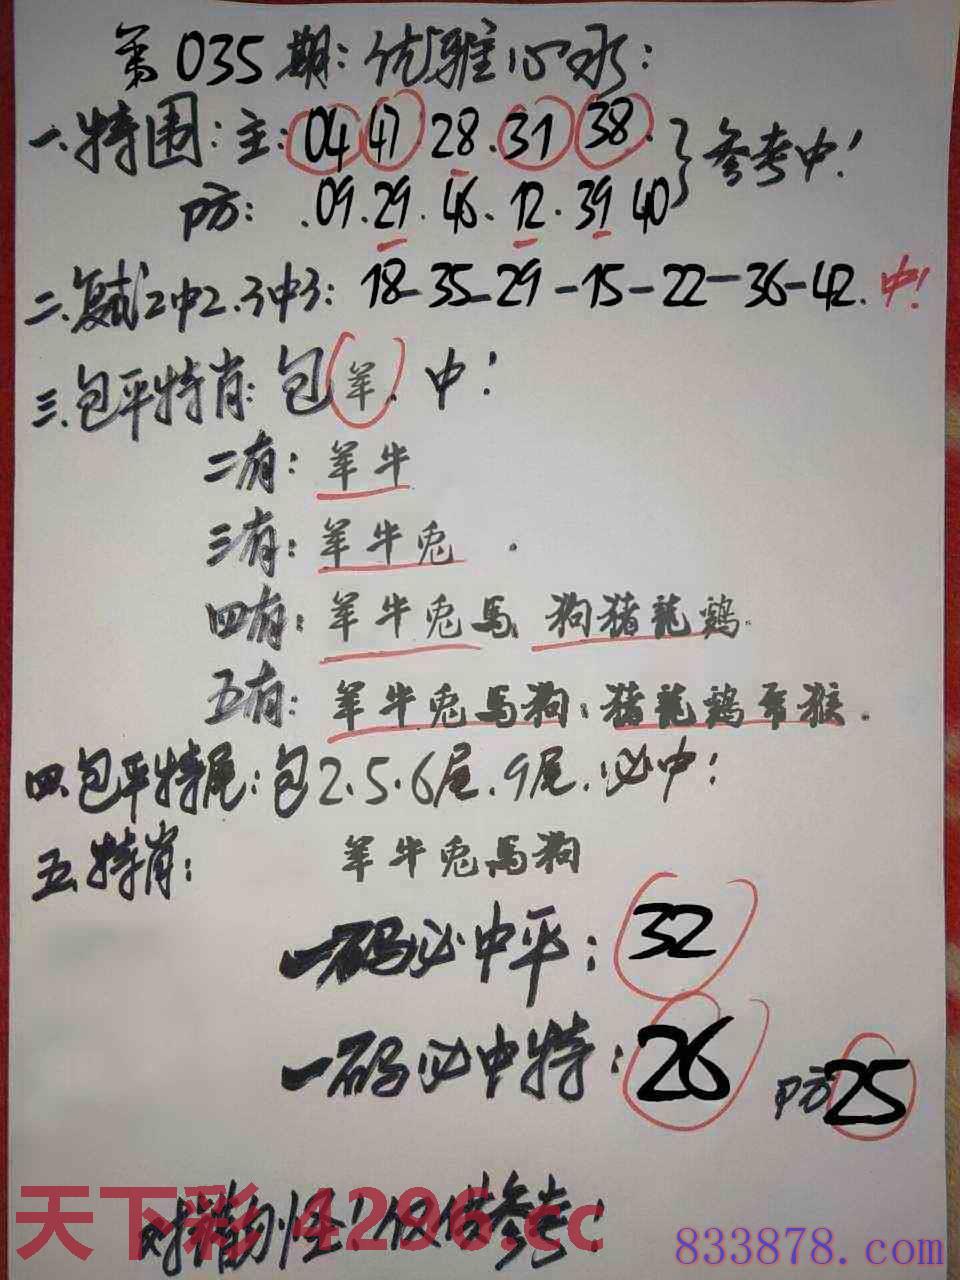 第035期:优雅心水:
一.特围:主:04 47 28.31 38.}参考中!
防:.09.29.46.12.39 40
二.复式2中2.3中3: 18-35-29-15-22-36-42.中!
三.包平特肖:包羊.中!
二有:羊牛
三有:羊牛兔.
四有:羊牛兔馬 狗猪龍鷄.
五有:羊牛兔馬狗:猪龍鷄 猴.
四.包平特尾:包2.5.6尾.9尾.必中:
五.特肖: 羊牛兔馬狗
一码必中平:32
一码必中特:26 防25
对错勿怪!仅供参考!
天下彩 4296.cc
833878.com